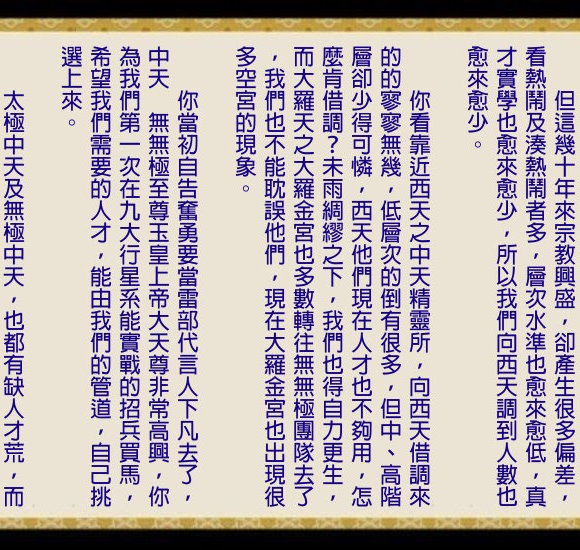 但這幾十年來宗教興盛，卻產生很多偏差，
看熱鬧及湊熱鬧者多，層次水準也愈來愈低，真
才實學也愈來愈少，所以我們向西天調到人數也
愈來愈少。
你看靠近西天之中天精靈所，向西天借調來
的的寥寥無幾，低層次的倒有很多，但中、高階
層卻少得可憐，西天他們現在人才也不夠用，怎
麼肯借調？未雨綢繆之下，我們也得自力更生，
而大羅天之大羅金宮也多數轉往無無極團隊去了
，我們也不能耽誤他們，現在大羅金宮也出現很
多空宮的現象。
你當初自告奮勇要當雷部代言人下凡去了，
中天　無無極至尊玉皇上帝大天尊非常高興，你
為我們第一次在九大行星系能實戰的招兵買馬，
希望我們需要的人才，能由我們的管道，自己挑
選上來。
太極中天及無極中天，也都有缺人才荒，而